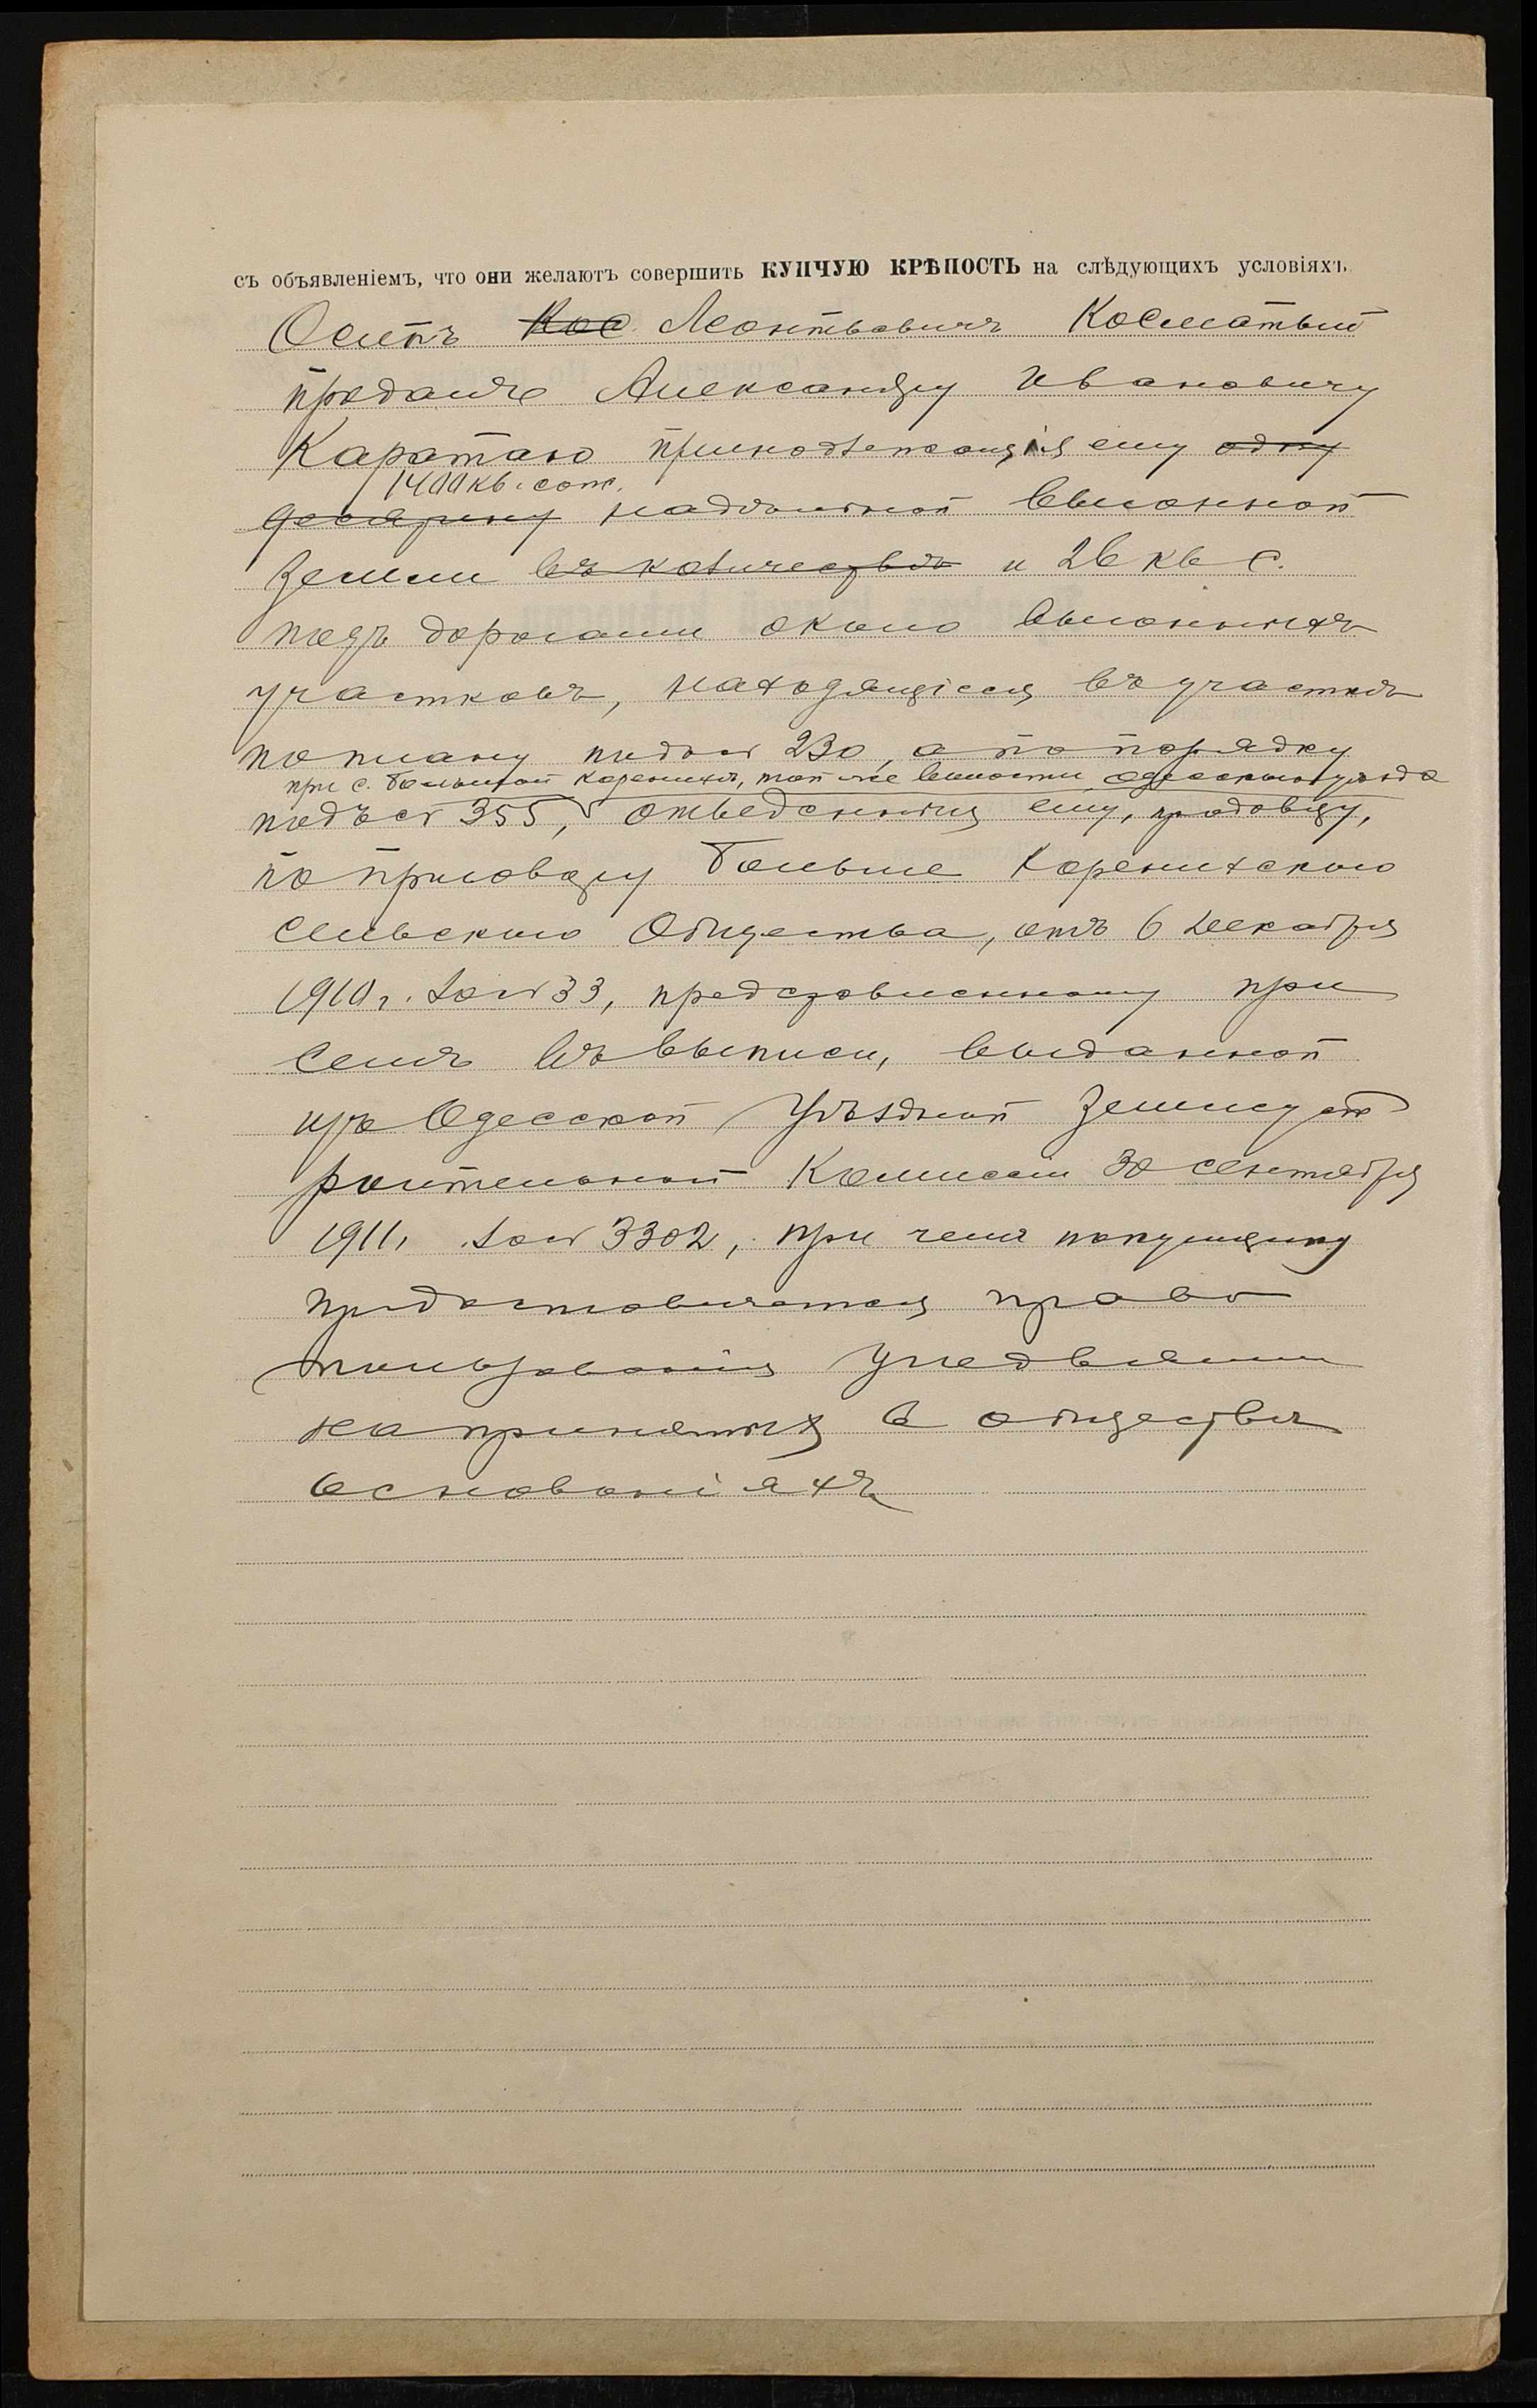 съ объявленіемъ, что они желаютъ совершить КУПЧУЮ КРѢПОСТЬ на слѣдующихъ условіяхъ.
Осипъ Кос Леонтьевичъ Косматый
продалъ Александру Ивановичу
Каратаю принадлежащія ему одну
1400 кв. саж.
десятину надѣльной выгонной
земли въ количествѣ и 26 кв с.
подъ дорогами около выгонныхъ
участковъ, находящіеся въ участкѣ
по плану подъ № 230, а по порядку
при с. Большой Каренихѣ, той же волости, Одесскаго уѣзда
подъ № 355, отведенныя ему, продавцу,
по приговору Больше Каренихскаго
сельскаго Общества, отъ 6 декабря
1910 г. за № 33, представленному при
семъ въ выписи, выданной
изъ Одесской Уѣздной Землеуст
роительной Комиссіи 30 сентября
1911, за № 3302, при чемъ покупщику
предоставляется право
пользованія
на принятыхъ в обществѣ
основаніяхъ